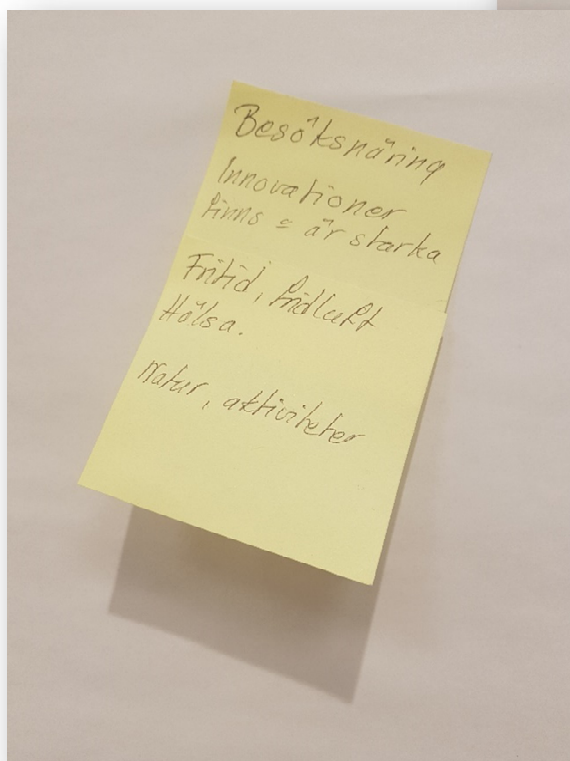 Besöksnäring
Innovationer
finns = är starka
Fritid, fridluft
Hälsa.
Natur, aktiviteter